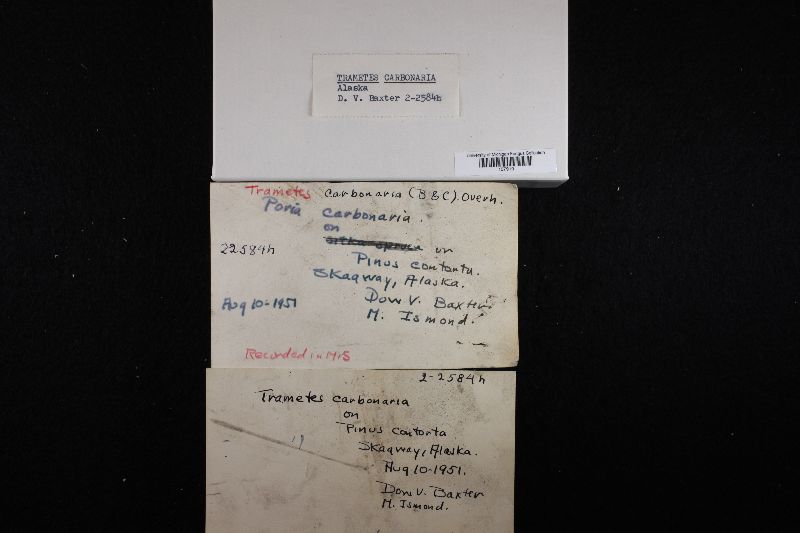 TRAMETES CARBONARIA
Alaska
D. V. Baxter 2-2584h
University of Michigan Fungus Collection
Trametes carbonaria (B&C). Overh.
Poria carbonaria.
on
sitka spruce on
22584h
Pinus contorta.
Skagway, Alaska.
Aug 10-1951
Dow V. Baxter
M. Ismond.
Recorded in MS
2-2584h
Trametes carbonaria
on
Pinus contorta
Skagway, Alaska.
Aug 10-1951.
Dow V. Baxter
M. Ismond.